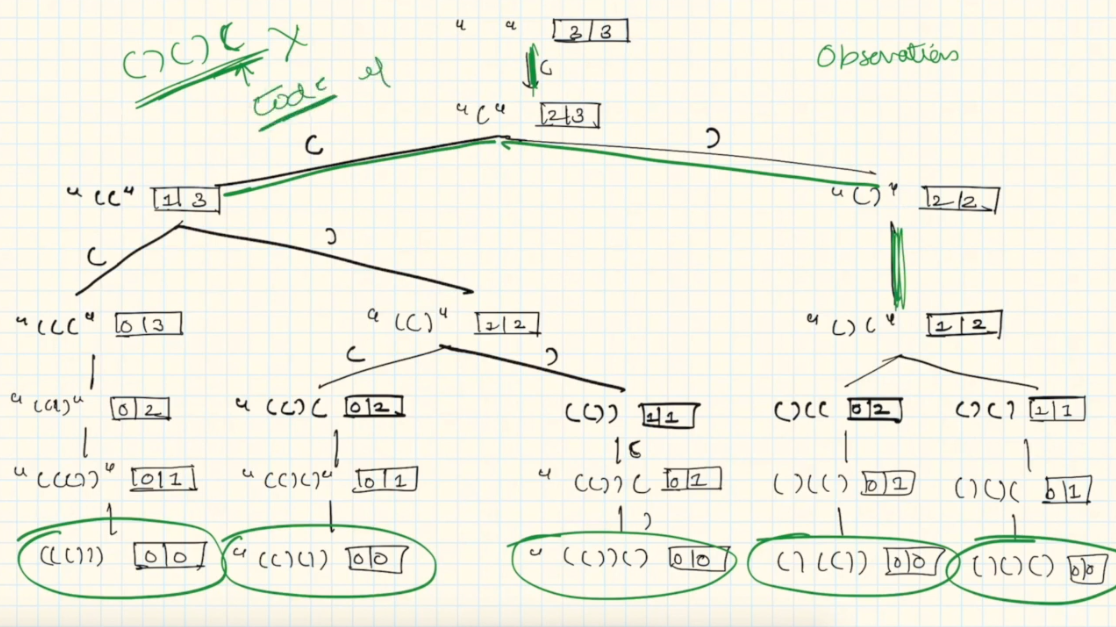 " " 3|3
()()( X
Code
Observations
(
"(" 2|3
( )
"((" 1|3
"()" 2|2
( )
"(((" 0|3
"(()" 1|2
"()(" 1|2
( )
"((()" 0|2
"(()( 0|2
(()) 1|1
()(( 0|2
()() 1|1
(
"((())" 0|1
"(()()" 0|1
"(())( 0|1
()(() 0|1
()()( 0|1
)
((())) 0|0
"(()()) 0|0
"(())() 0|0
()(()) 0|0
()()() 0|0